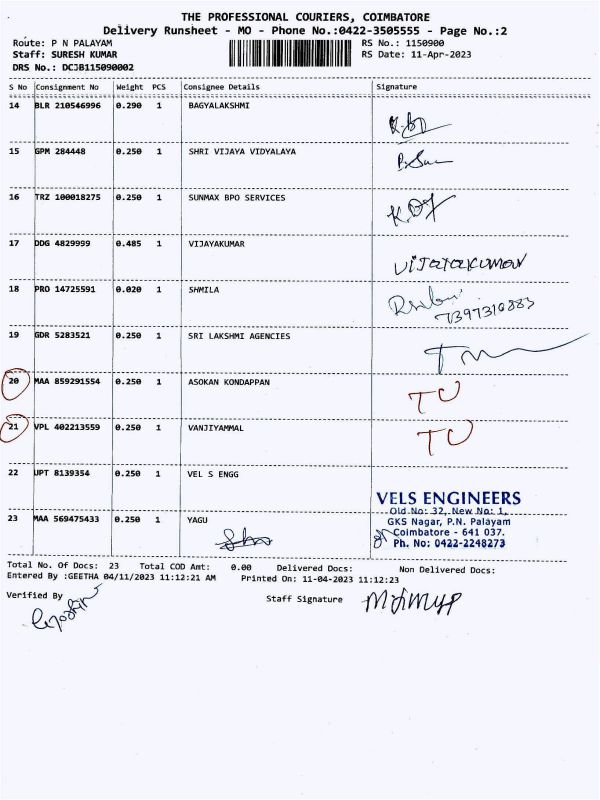 THE PROFESSIONAL COURIERS, COIMBATORE
Delivery Runsheet - MO - Phone No.:0422-3505555 - Page No.:2
Route: P N PALAYAM RS No.: 1150900
Staff: SURESH KUMAR RS Date: 11-Apr-2023
DRS No.: DCJB115090002
S No Consignment No Weight PCS Consignee Details Signature
14 BLR 210546996 0.290 1 BAGYALAKSHMI
15 GPM 284448 0.250 1 SHRI VIJAYA VIDYALAYA
16 TRZ 100018275 0.250 1 SUNMAX BPO SERVICES
17 DDG 4829999 0.485 1 VIJAYAKUMAR
VIJAYAKUMAR
18 PRO 14725591 0.020 1 SHMILA
7397310883
19 GDR 5283521 0.250 1 SRI LAKSHMI AGENCIES
20 MAA 859291554 0.250 1 ASOKAN KONDAPPAN TU
21 VPL 402213559 0.250 1 VANJIYAMMAL TU
22 UPT 8139354 0.250 1 VEL S ENGG
VELS ENGINEERS
Old No: 32, New No: 1,
GKS Nagar, P.N. Palayam
Coimbatore - 641 037.
Ph. No: 0422-2248273
23 MAA 569475433 0.250 1 YAGU
Total No. Of Docs: 23 Total COD Amt: 0.00 Delivered Docs: Non Delivered Docs:
Entered By :GEETHA 04/11/2023 11:12:21 AM Printed On: 11-04-2023 11:12:23
Verified By Staff Signature